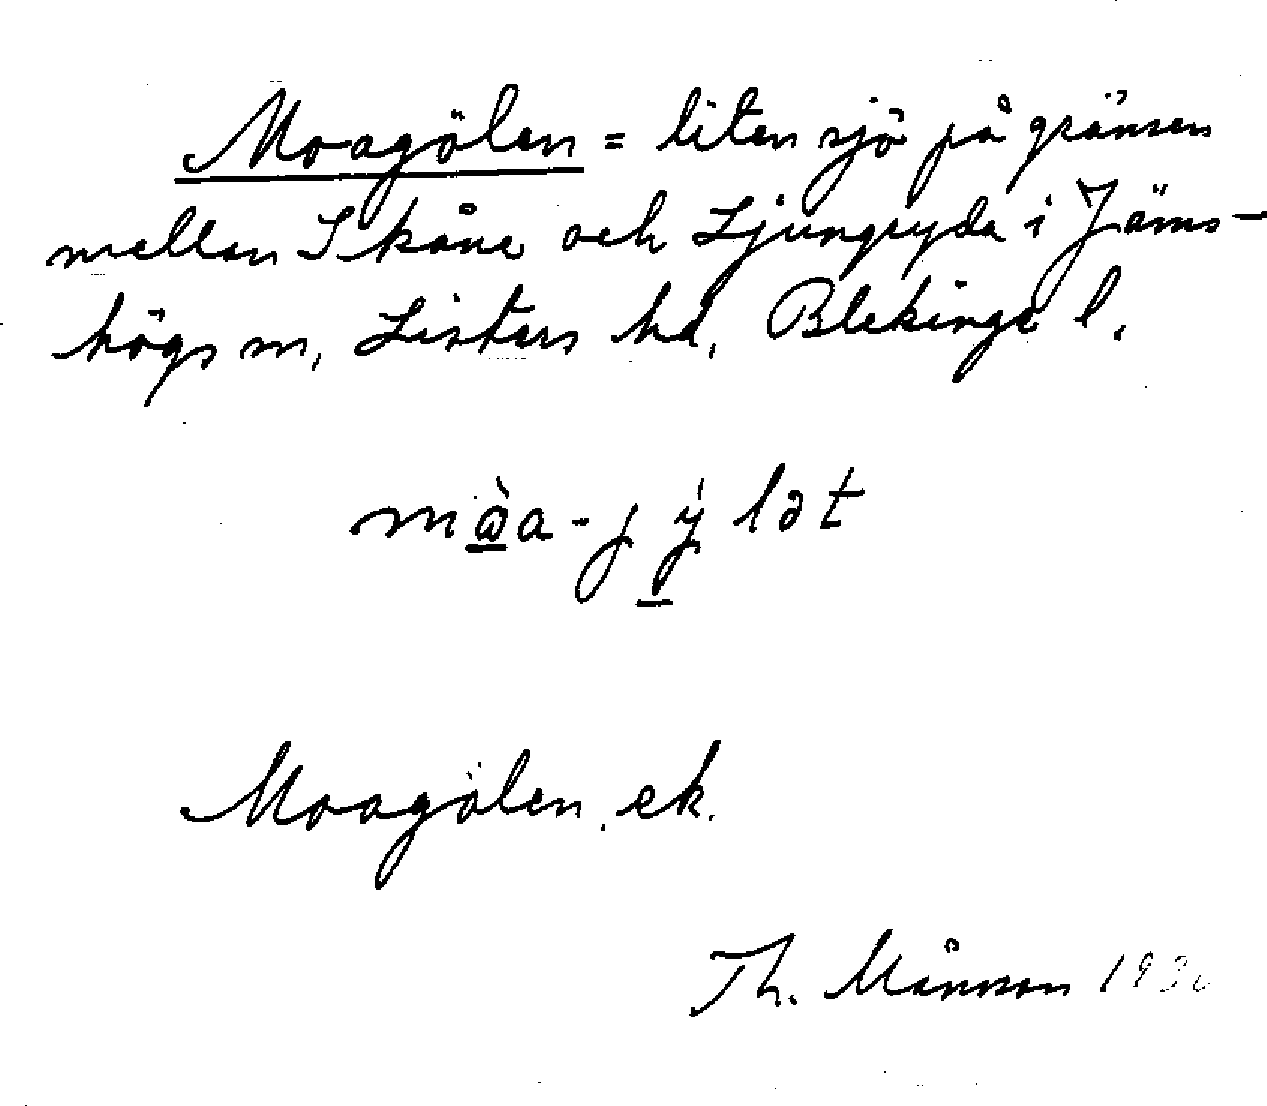 Moagölen = liten sjö på gränsen
mellan Skåne och Ljungryda i Jäms-
högs sn, Listers hd, Blekinge l.
mòa-jýlət
Moagölen. ek.
Th. Månsson 1930